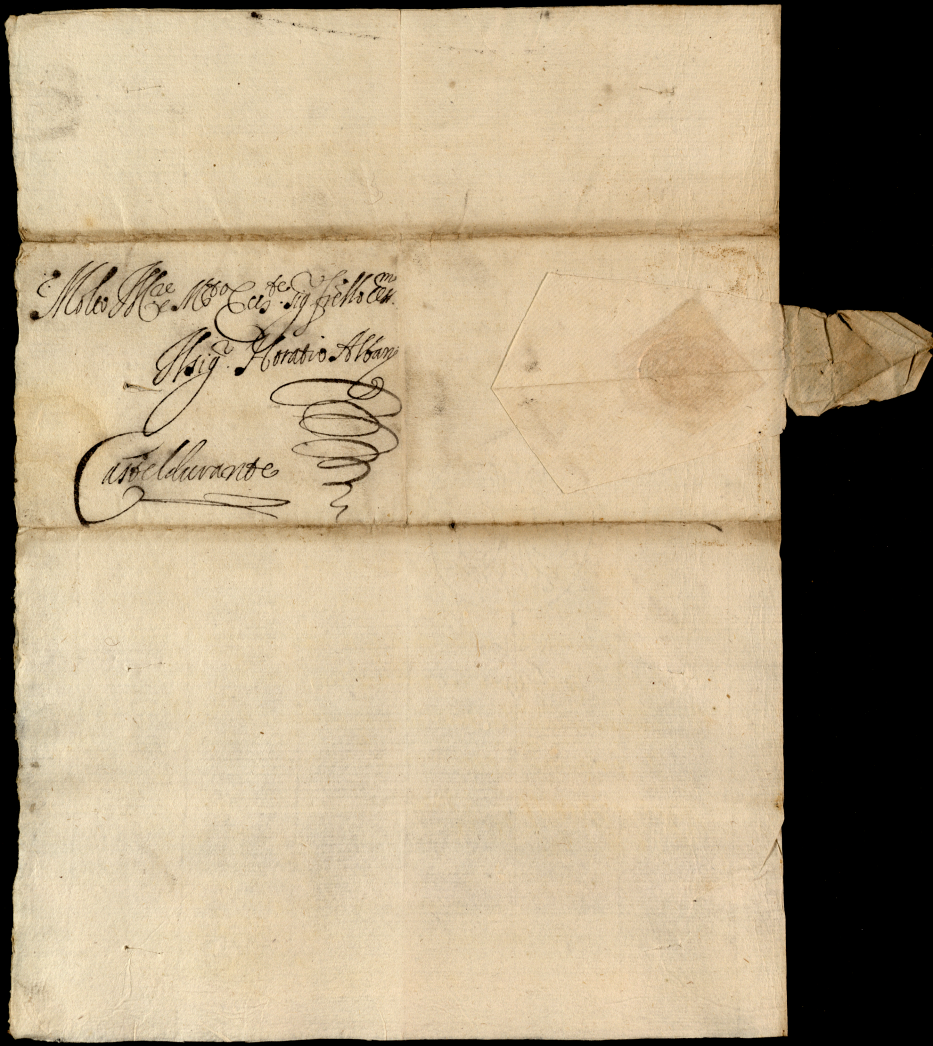 Molto Ill.re et M.to Ecc.te sig.r fr̃ello oss.mo
Il sig.r Horatio Albani
Casteldurante